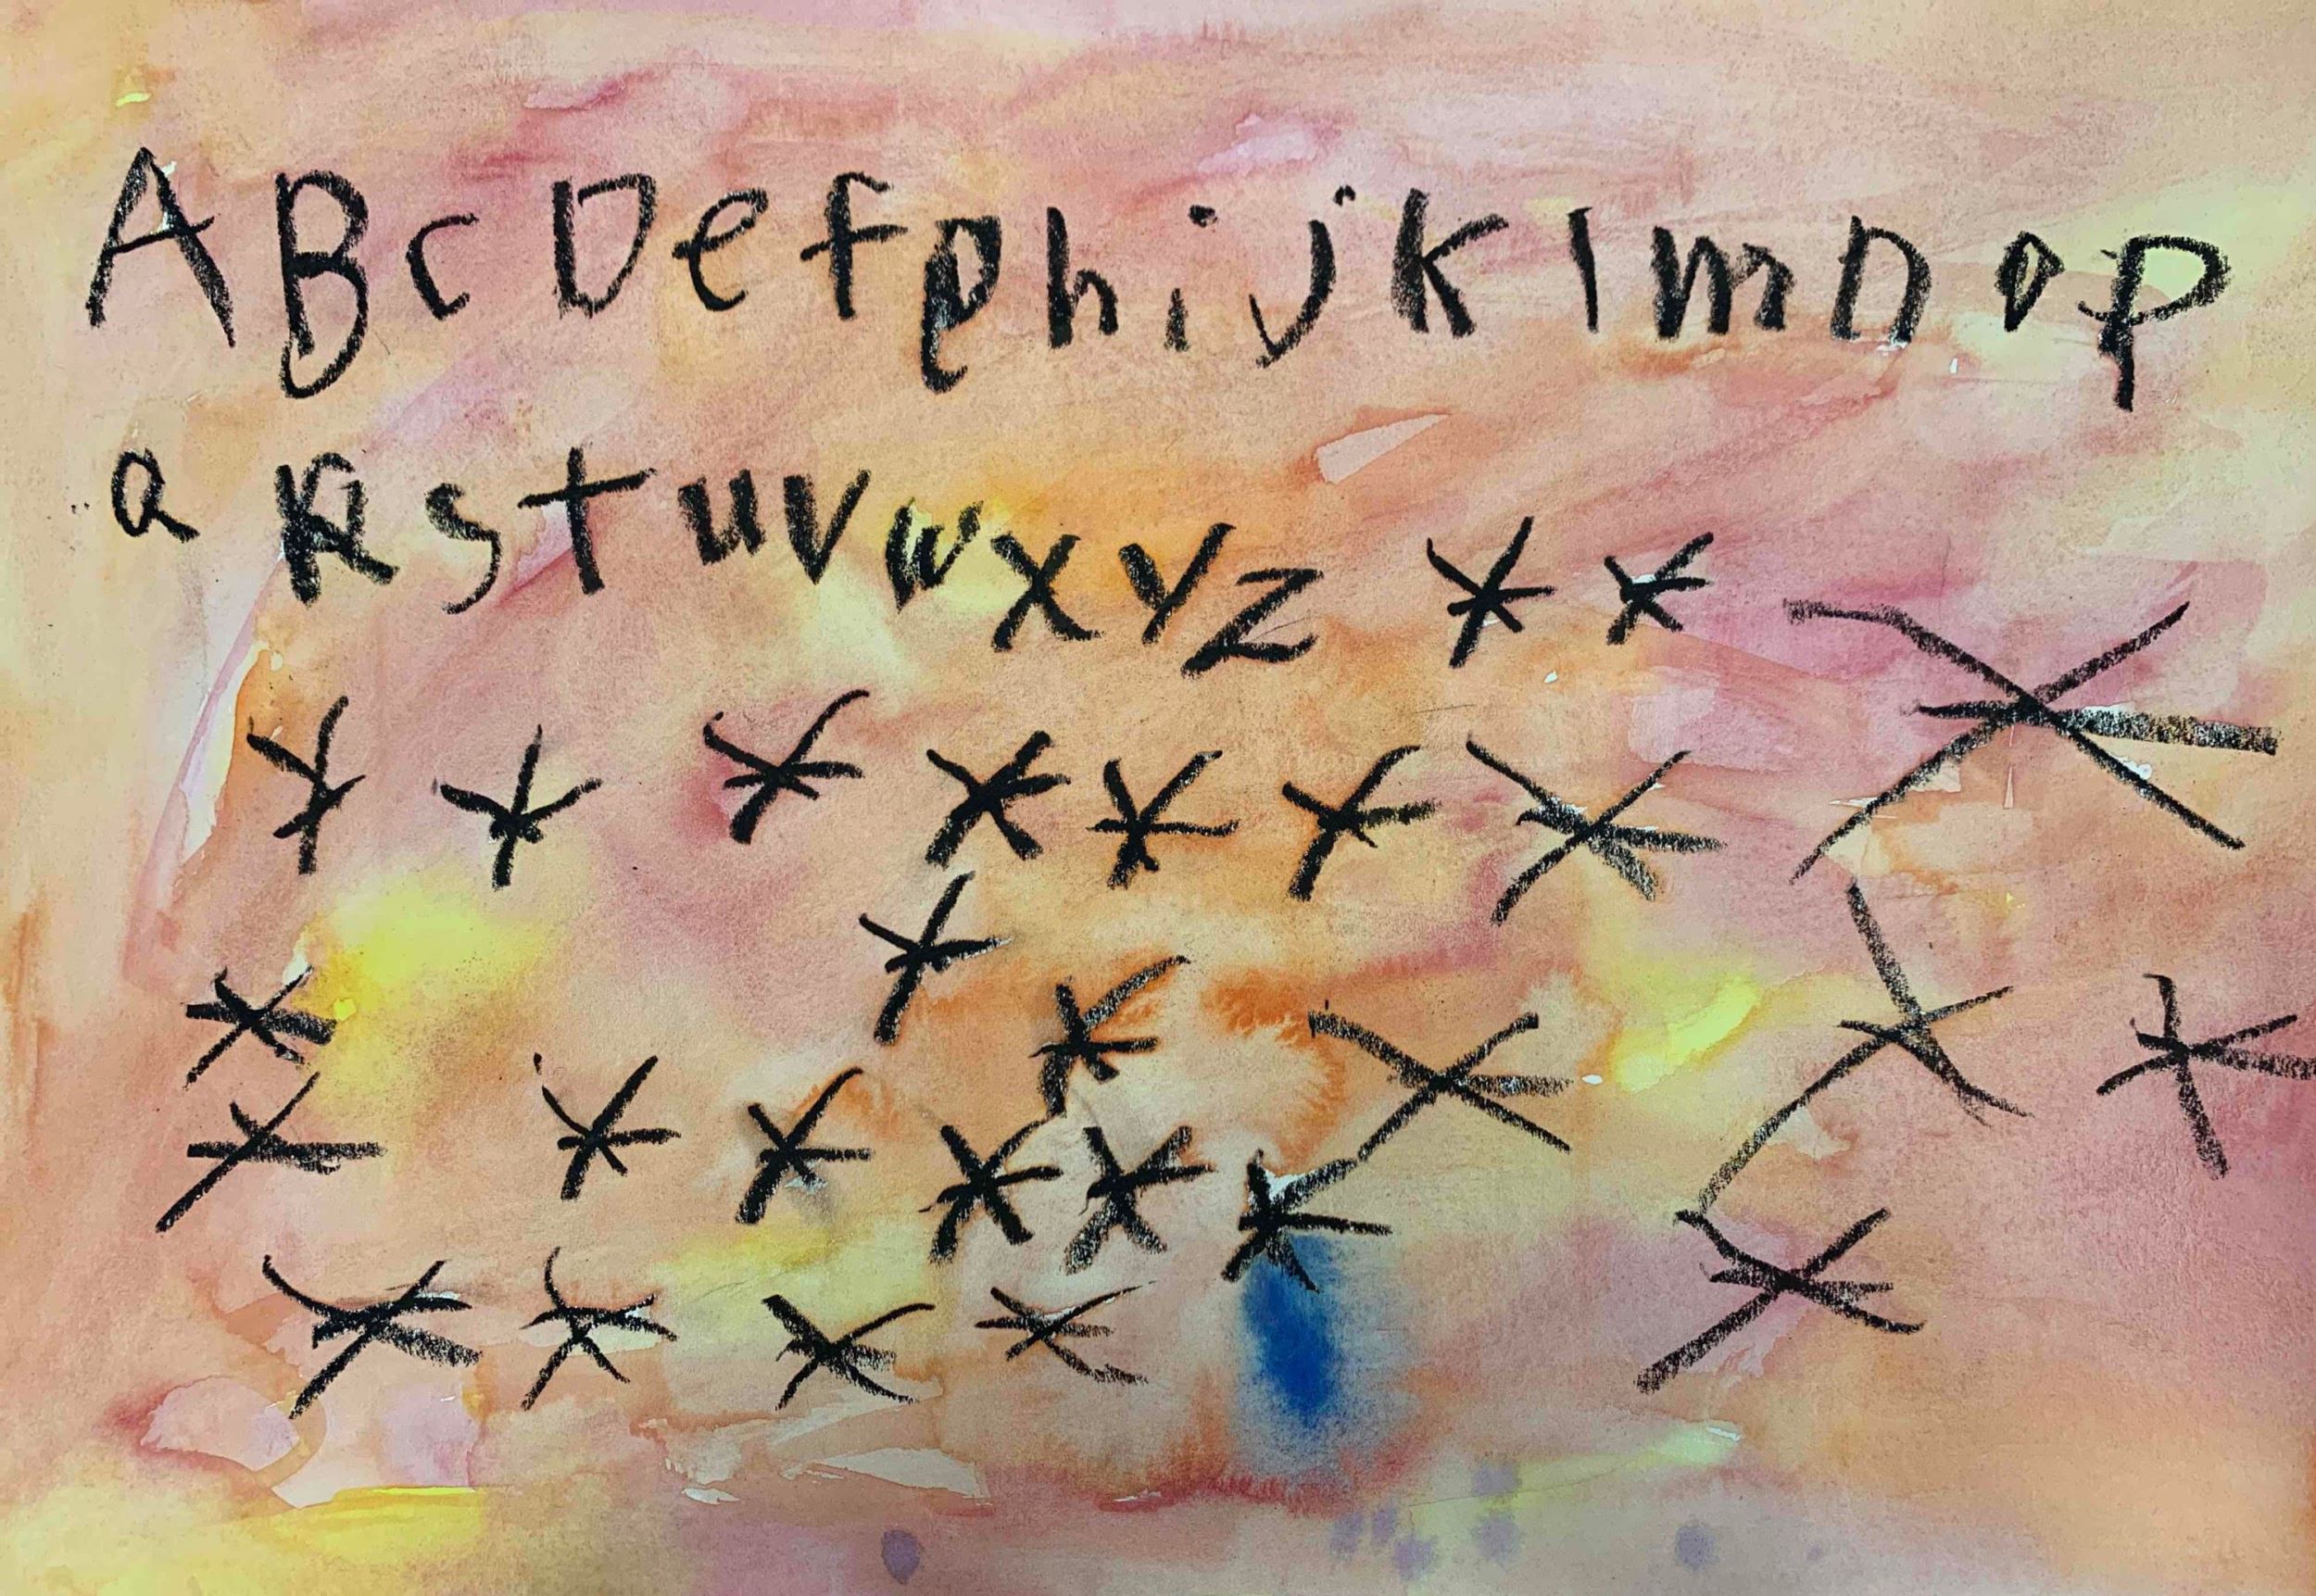 A B c D e f g h i j K l m n o p
Q R s t u v w x y z